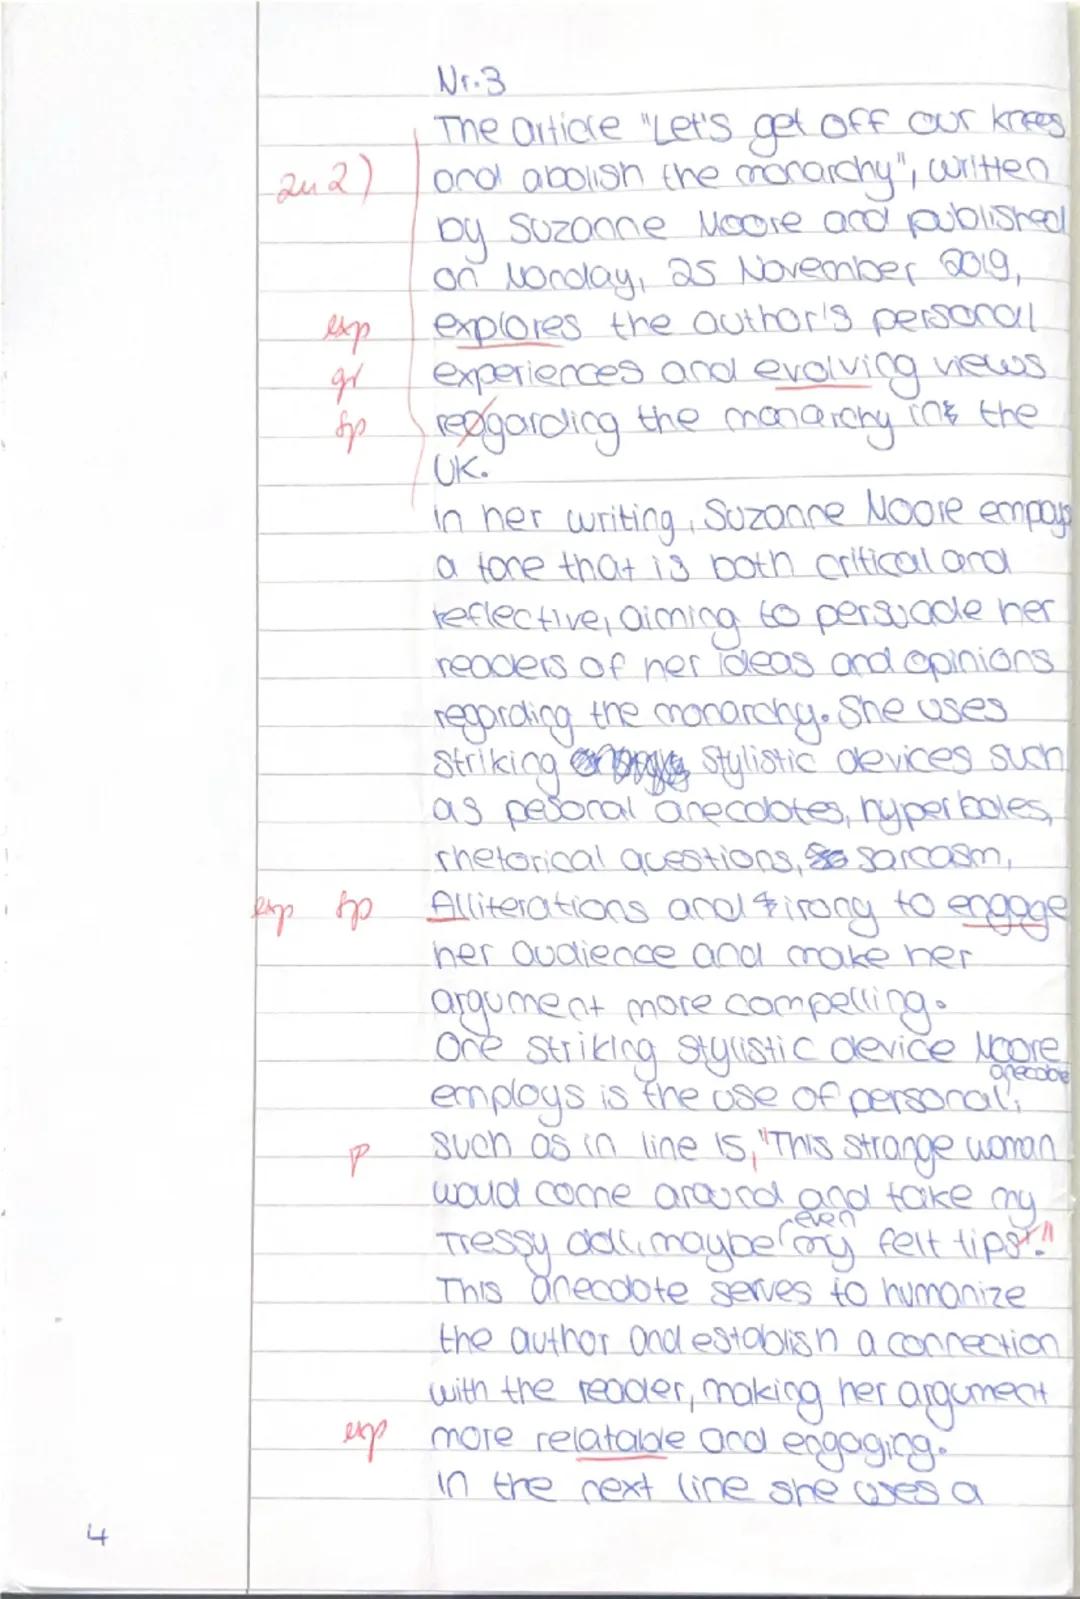 Nr.3
The article "Let's get off our knees
zu 2) and abolish the monarchy", written
by Suzanne Moore and published
on Monday, 25 November 2019,
exp explores the author's personal
gr experiences and evolving views
sp regarding the monarchy in the
UK.
In her writing, Suzanne Moore empoys
a tone that is both critical and
reflective, aiming to persuade her
readers of her ideas and opinions
regarding the monarchy. She uses
striking stylistic devices such
as pesonal anecdotes, hyperboles,
rhetorical questions, sarcasm,
exp sp Alliterations and irony to engage
her audience and make her
argument more compelling.
One striking stylistic device Moore
anecdote
employs is the use of personal,
p such as in line 15, "This strange woman
woud come around and take my
even
Tressy doll, maybe my felt tips."
This anecdote serves to humanize
the author and establish a connection
with the reader, making her argument
exp more relatable and engaging.
In the next line she uses a
4